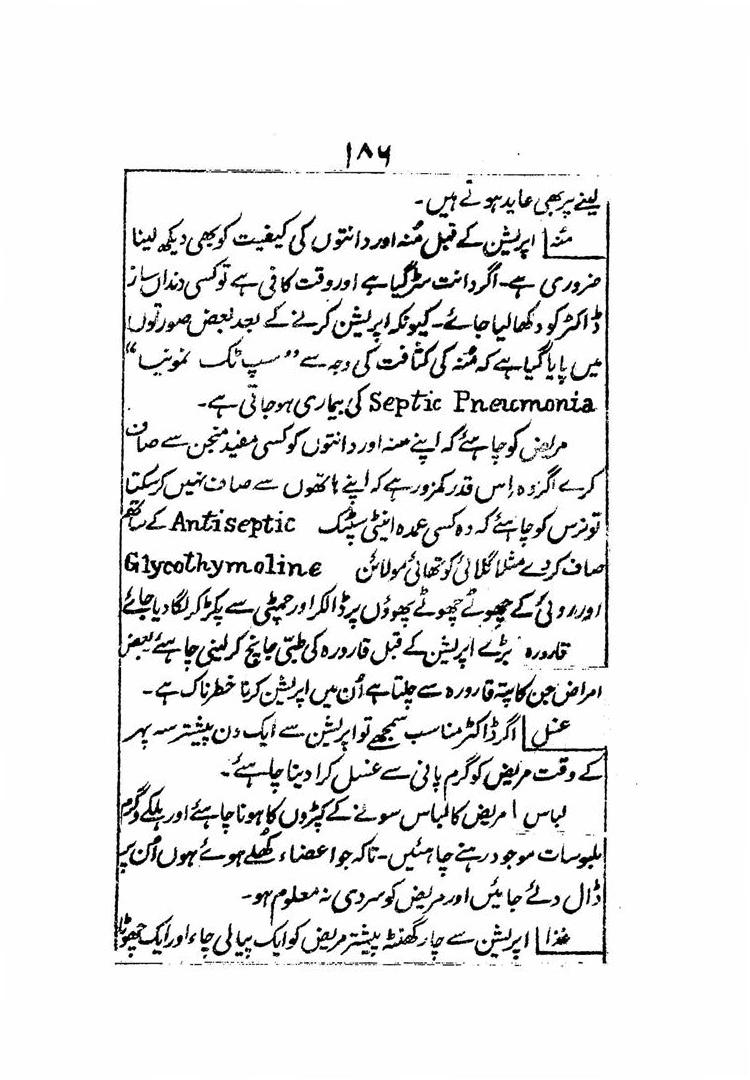 ۱۸۶
لینے پر بھی عاید ہوتے ہیں۔
مُنہ | اپریشن کے قبل مُنہ اور دانتوں کی کیفیت کو بھی دیکھ لینا
ضروری ہے۔ اگر دانت سڑ گیا ہے اور وقت کافی ہے تو کسی دنداں ساز
ڈاکٹر کو دکھا لیا جائے۔ کیونکہ اپریشن کرنے کے بعد بعض صورتوں
میں پایا گیا ہے کہ مُنہ کی کثافت کی وجہ سے "سپ ٹک نمونیا"
Septic Pneumonia کی بیماری ہو جاتی ہے۔
مریض کو چاہئے کہ اپنے منہ اور دانتوں کو کسی مفید منجن سے صاف
کرے اگر وہ اِس قدر کمزور ہے کہ اپنے ہاتھوں سے صاف نہیں کر سکتا
تو نرس کو چاہئے کہ وہ کسی عمدہ اینٹی سپٹک Antiseptic کے ساتھ
صاف کر دے مثلا گلائی کو تھائی مولائن Glycothymoline
اور روئی کے چھوٹے چھوٹے پھوؤں پر ڈالکر اور چمٹی سے پکڑ کر لگا دیا جائے
قارورہ بڑے اپریشن کے قبل قارورہ کی طبّی جانچ کر لینی چاہئے بعض
امراض جن کا پتہ قارورہ سے چلتا ہے اُن میں اپریشن کرنا خطرناک ہے۔
غسل | اگر ڈاکٹر مناسب سمجھے تو اپریشن سے ایک دن پیشتر سہ پہر
کے وقت مریض کو گرم پانی سے غسل کرا دینا چاہئے۔
لباس | مریض کا لباس سونے کے کپڑوں کا ہونا چاہئے اور ہلکے و گرم
ملبوسات موجود رہنے چاہئیں۔ تاکہ جو اعضاء کھلے ہوئے ہوں اُن پر
ڈال دئے جائیں اور مریض کو سردی نہ معلوم ہو۔
غذا | اپریشن سے چار گھنٹہ پیشتر مریض کو ایک پیالی چاء اور ایک چھوٹا